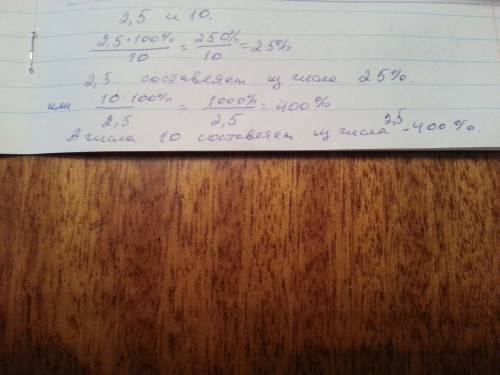 2,5 и 10.
2,5·100% / 10 = 250% / 10 = 25%
2,5 составляет из числа 25%.
или 10·100% / 2,5 = 1000% / 2,5 = 400%
А числа 10 составляет из числа 2,5 - 400%.